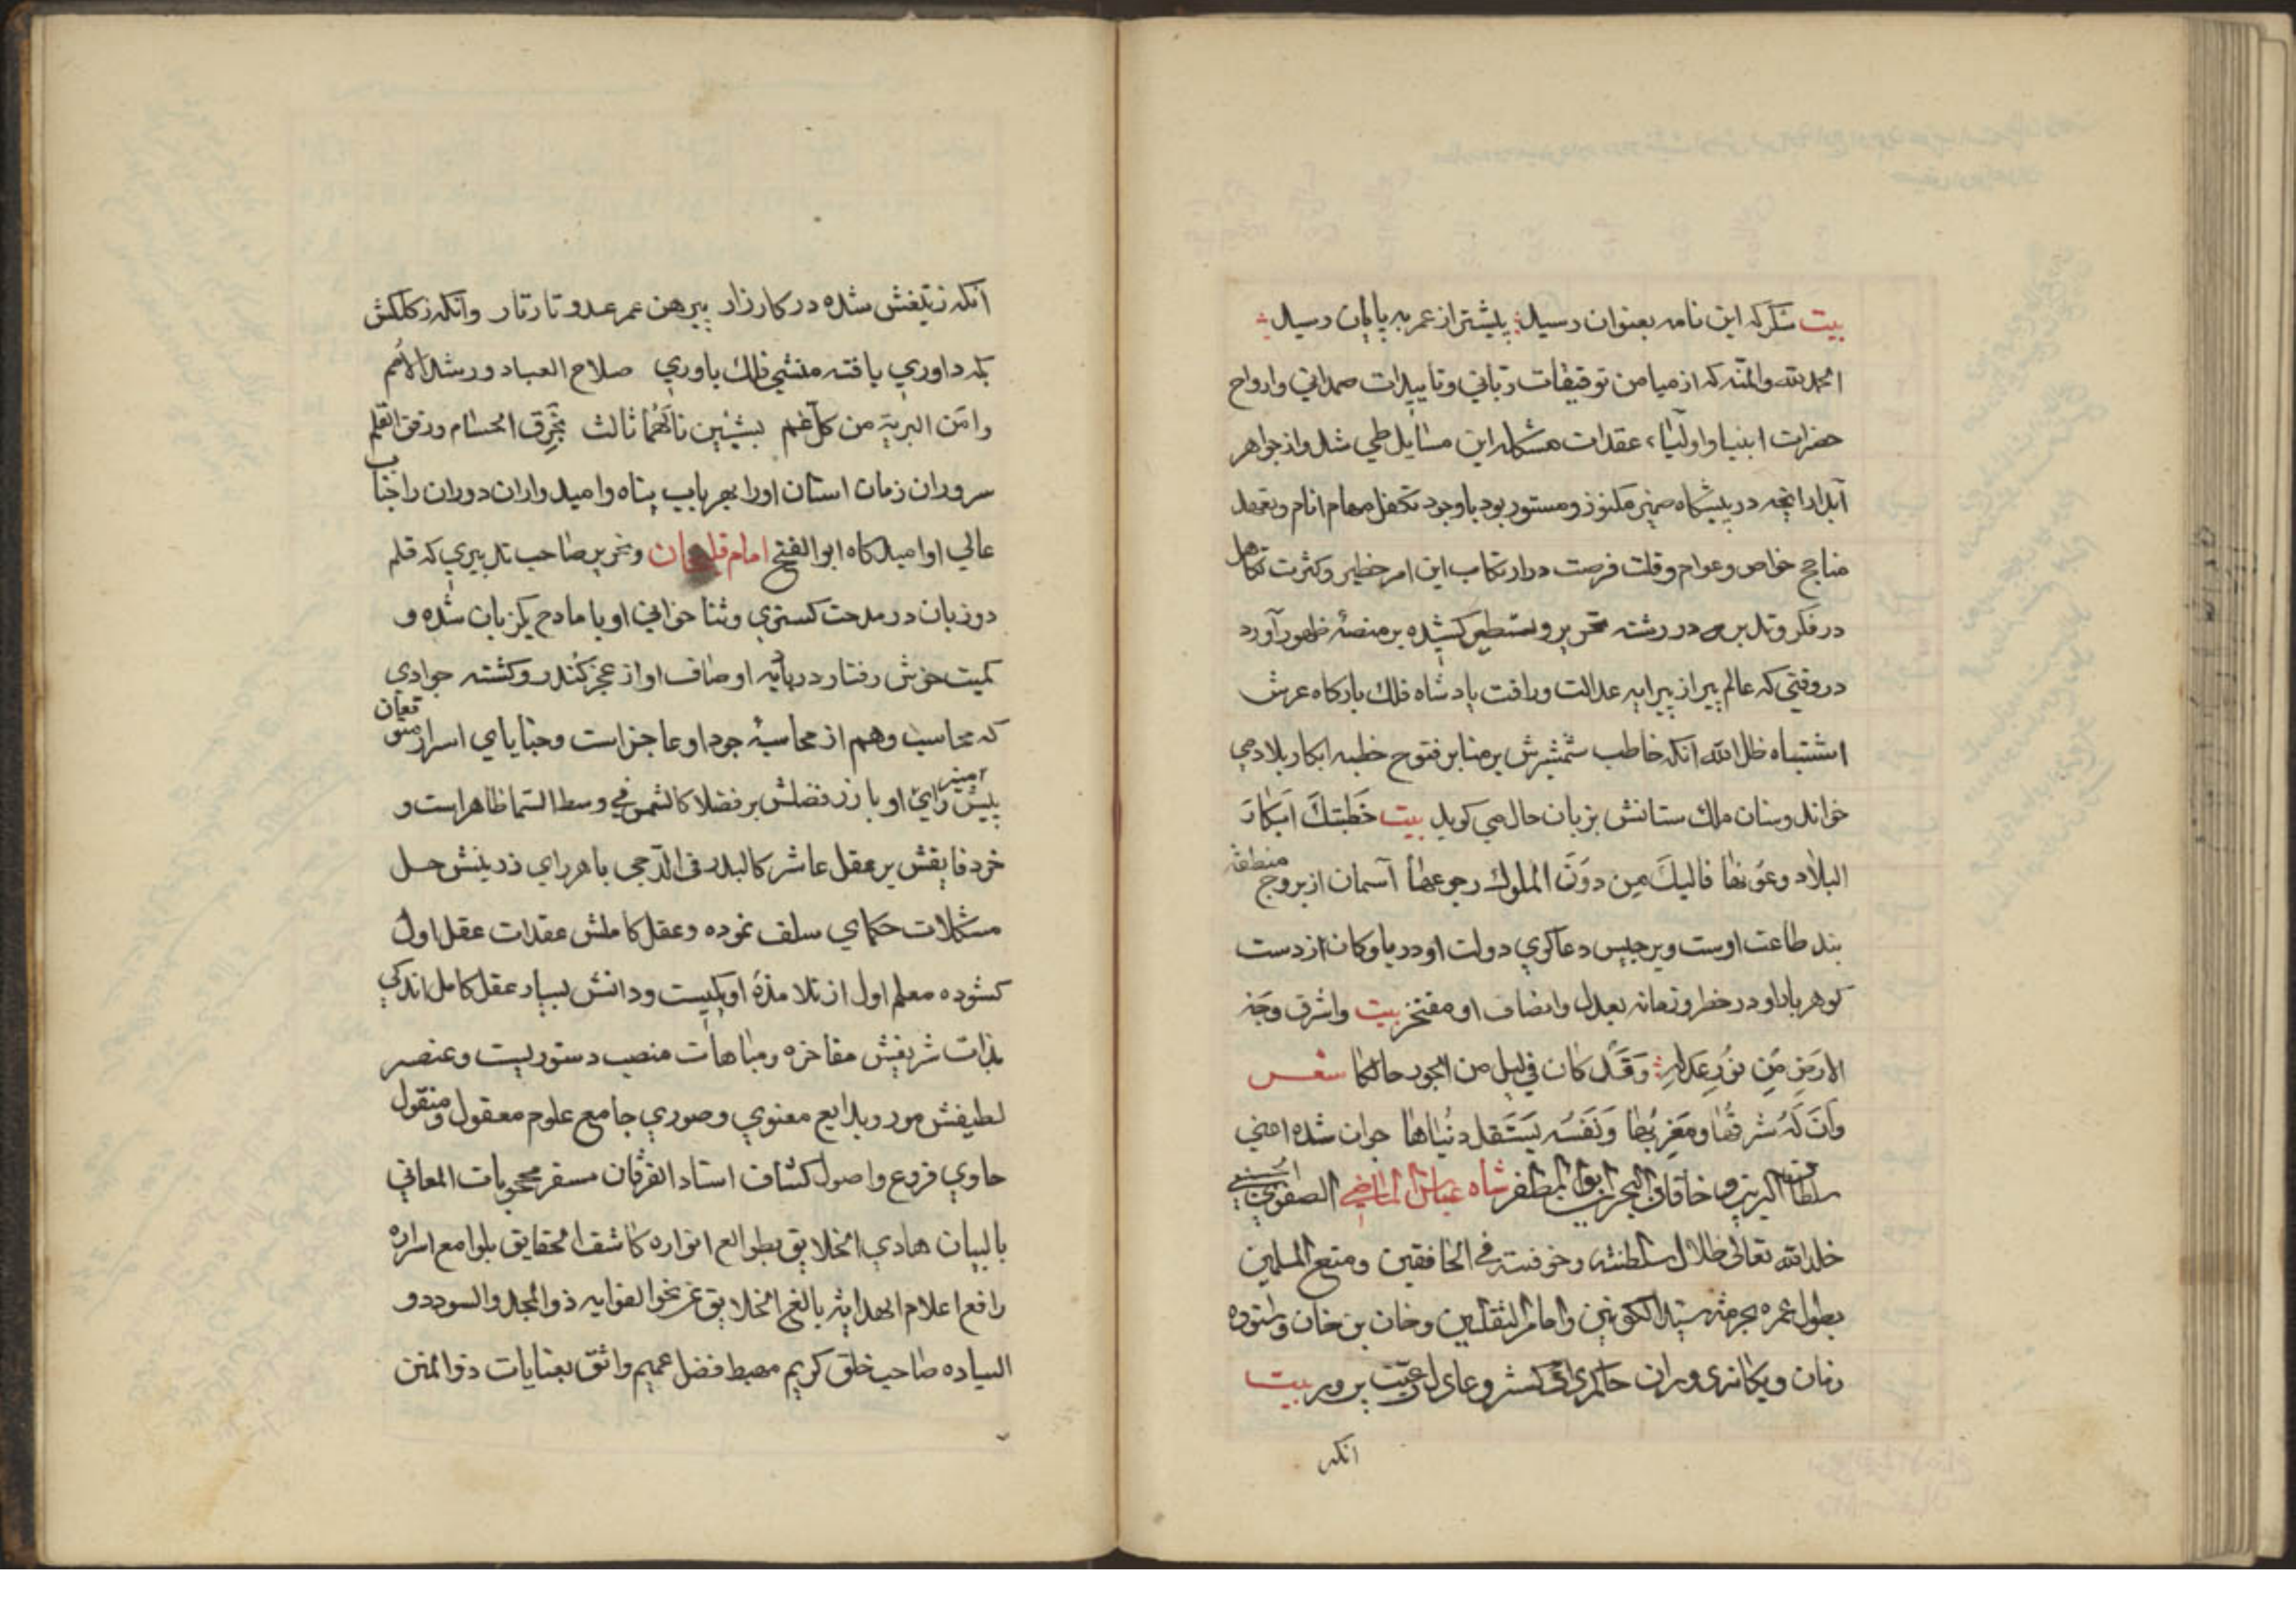 بیت شکر که این نامه بعنوان رسید پیشتر از عمر به پایان رسید
الحمد لله والمنه که از میامن توفیقات ربانی و تاییدات صمدانی و ارواح
حضرات انبیا و اولیاء عقدات مشکله این مسایل طی شد و از جواهر
آبدار انچه در پیشکاه ضمیر مکنوز و مستور بود با وجود تکفل مهام انام و تعهد
مناجح خواص و عوام و قلت فرصت در ارتکاب این امر خطیر و کثرت تکاهل
در فکر و تدبر در رشته تحریر و تسطیر کشیده بر منصهٔ ظهور آورد
در وقتی که عالم پیر از پیرایه عدالت و رافت پادشاه فلک بارکاه عرش
اشتباه ظل الله انکه خاطب شمشیرش بر منابر فتوح خطبه ابکار بلاد می
خواند و سنان ملک ستانش بزبان حال می کوید بیت خَطَبَتكَ اَبکارَ
البلاد وعونها فالیكَ مِن دوُنَ الملوك رجوعها آسمان از بروج منطقه
بند طاعت اوست و برجیس دعا کوی دولت او دریا و کان از دست
کوهر بار او در خطر و زمانه بعدل و انصاف او مفتخر بیت واشرق وجَه
الارضِ مِن نوُرِ عَدلِهِ وَقَد کان فی لیل من الجور حالکا شعر
وَاَنَ لَهُ شرقُها ومَغربُها وَنَفسُه یَستَقل دُنیاها جوان شده اعنی
سلطان البرین و خاقان البحرین ابو المظفر شاه عباس الماضی الصفوی الحسینی
خلد الله تعالی ظلال سلطنته و خوفته فی الخافقین و متع المسلمین
بطول عمره بحرمة سید الکونین و امام الثقلین و خان بن خان و ستوده
زمان و یکانه دوران حاکم رافت کستر و عادل رعیت پرور بیت
انکه
انکه ز تیغش شده در کارزار پیرهن عمر عدو تار تار وانکه ز کلکش
بکه داوری یافته منشی فلک یاوری صلاح العباد و رشد الاُمم
وامَن البریة من کل غم بشیئین ما لَهُما ثالث بخَرق الحسام و رفق القلم
سروران زمان استان اورا بهر بابی پناه و امید واران دوران را جناب
عالی او امید کاه ابو الفتح امام قلیخان و نحریر صاحب تدبیری که قلم
دو زبان در مدحت کستری و ثنا خوانی او با مادح یکزبان شده و
کمیت خوش رفتار در بادیه اوصاف او از عجز کُند رو کشته جوادی
که محاسب وهم از محاسبهٔ جود او عاجز است و خبایای اسرار متعان
پیش رای منیر او بارز فضلش بر فضلا کالشمس فی وسط السما ظاهر است و
خرد فایقش بر عقل عاشر کالبدر فی الدّجی باهر رای ذرینش حل
مشکلات حکمای سلف نموده و عقل کاملش عقدات عقل اول
کشوده معلم اول از تلامذهٔ او یکیست و دانش بسیار عقل کامل اندکی
بذات شریفش مفاخره و مباهات منصب دستوریست و عنصر
لطیفش مورد بدایع معنوی و صوری جامع علوم معقول و منقول
حاوی فروع و اصول کشاف استاد الفرقان مسفر محجوبات المعانی
بالبیان هادی الخلایق بطوالع انواره کاشف الحقایق بلوامع اسراره
رافع اعلام الهدایة بالغ الخلایق عن نحو الغوایه ذو المجد والسودد و
السیاده صاحب خلق کریم مهبط فضل عمیم واثق بعنایات ذو المنن